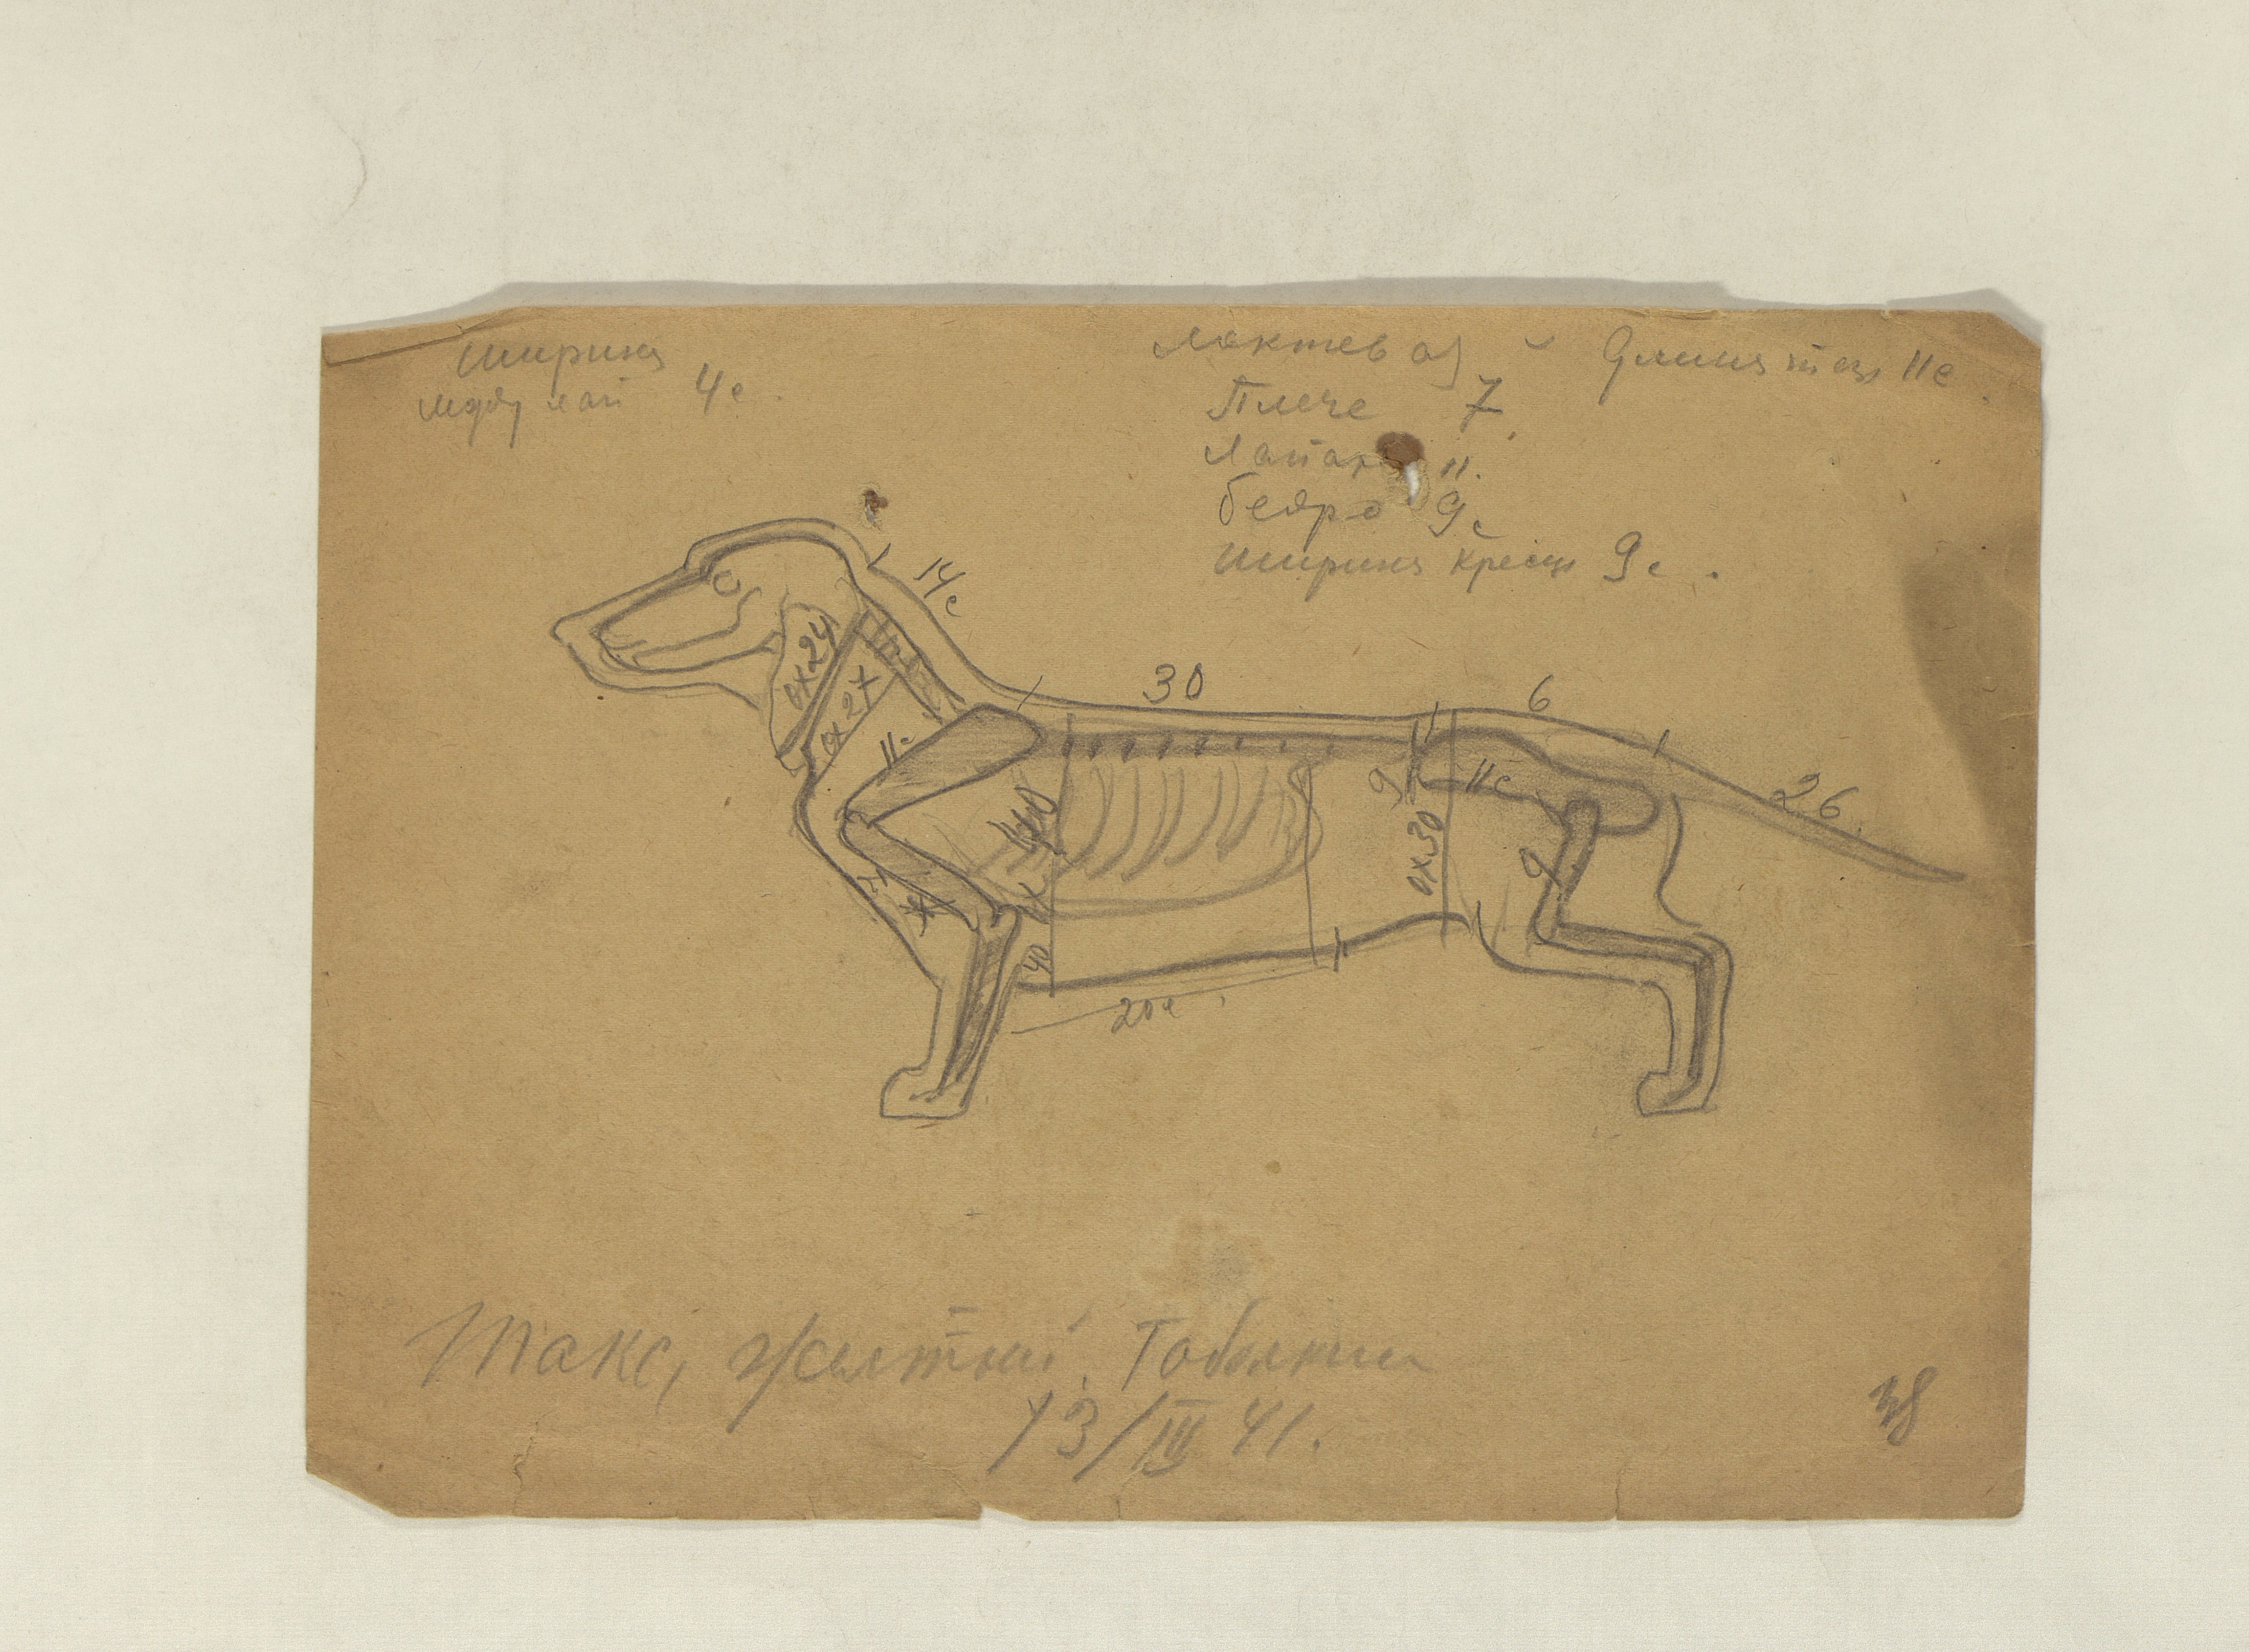 Ширина
между лап 4с.
локтев
Длина таз 11с
Плече 7
Лапатк 11.
бедро 9с
ширина крест 9с.
14с
30
6
26.
ох 24
ох 27
11с
9
11с
ох 30
9
40
20с
Такс, желтый. Тоболкин
13/III 41.
38